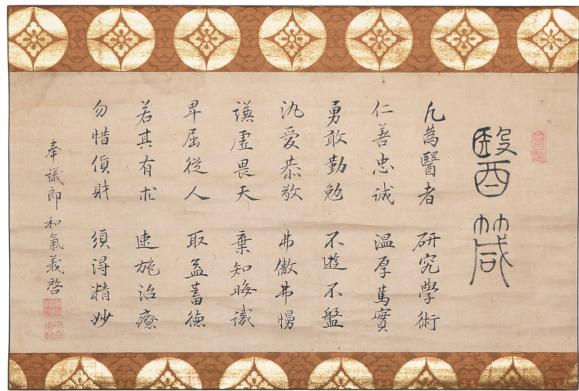 醫箴
凡為醫者 研究學術
仁善忠誠 温厚篤實
勇敢勤勉 不遊不盤
氿愛恭敬 弗傲弗慢
謙虛畏天 棄知晦識
卑屈從人 取益蓄德
若其有求 速施治療
勿惜貨財 須得精妙
奉議郎 和氣義啓